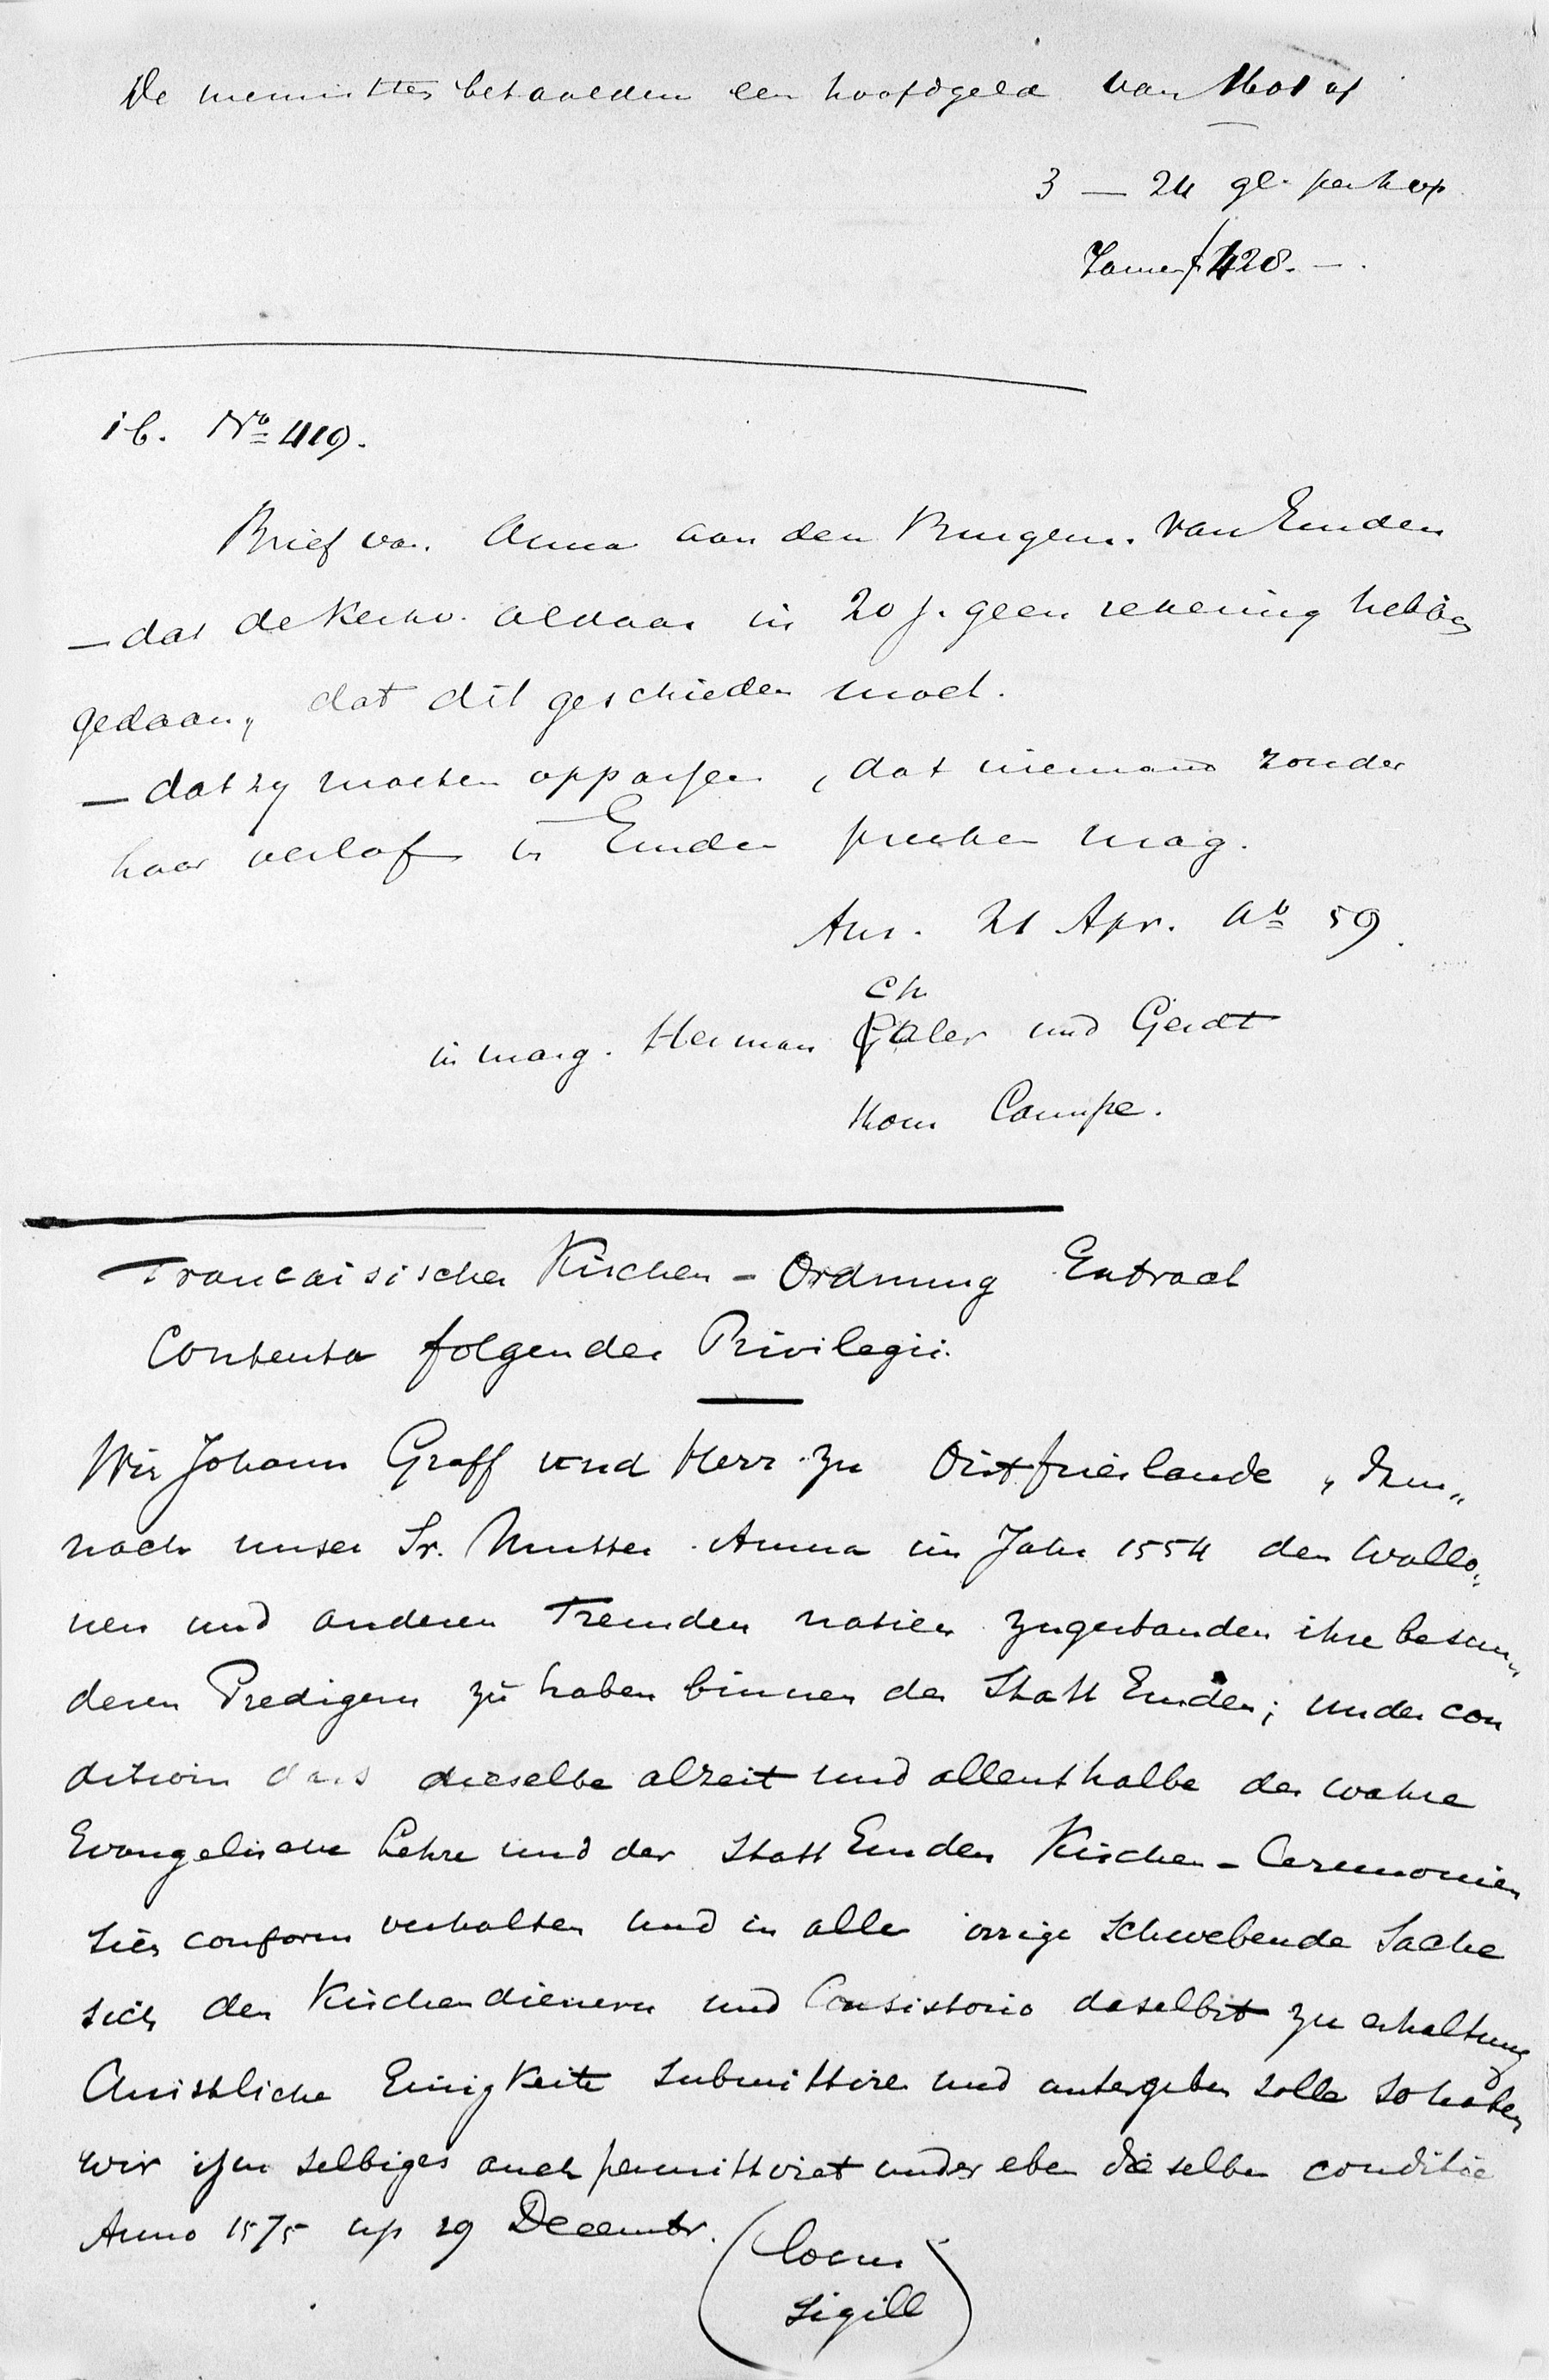 De mennisten betaalden een hoofdgeld van 1601 af
3 — 24 gl. per kop
Samen f 428.—.
ib. No 419.
Brief van Anna aan den Burgem. van Emden
— dat de Kerkv. aldaar in 20 j. geen rekening hebben
gedaan, dat dit geschieden moet.
— dat zy moeten oppassen, dat niemand zonder
haar verlof in Emden preeken mag.
Aur. 21 Apr. Ao 59.
ch
in marg. Herman aler und Gerdt
thom Campe.
Francaisischer Kirchen-Ordnung Extract
Contenta folgender Privilegii.
Wir Johann Graff und Herr zu Oistfrieslande, dem„
nach unser Fr. Mutter Anna im Jahr 1554 den Wallo„
nen und anderen Fremden natien zugestanden ihre besun„
deren Predigern zu haben binnen der Statt Emden; under con
dition dass dieselbe alzeit und allenthalbe der wahre
Evangelische Lehre und der Statt Emden Kirchen-Ceremonien
sich conform verhalten und in alle irrige schwebende Sache
sich den Kirchendienern und Consistorio daselbst zu erhaltung
Christliche Einigkeite submittiren und untergeben solle so haben
wir ihn selbiges auch permittiret under eben dieselben conditie
Anno 1575 up 29 Decembr.
(Locus
Sigill)